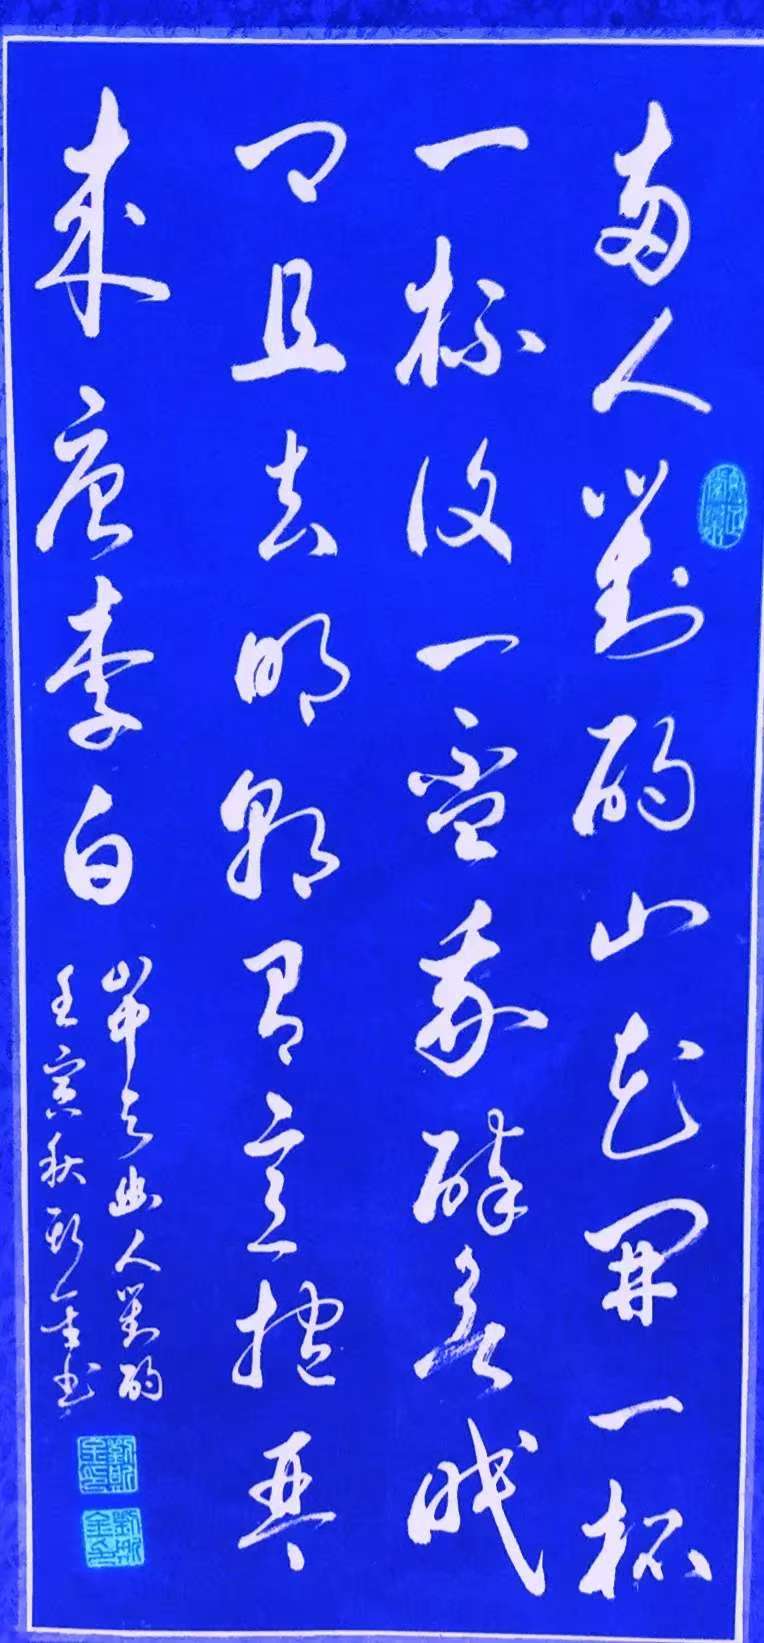 两人對酌山花開一杯
一杯復一盃我醉欲眠
卿且去明朝有意抱琴
来唐李白
山中与幽人對酌
壬寅秋斯金书